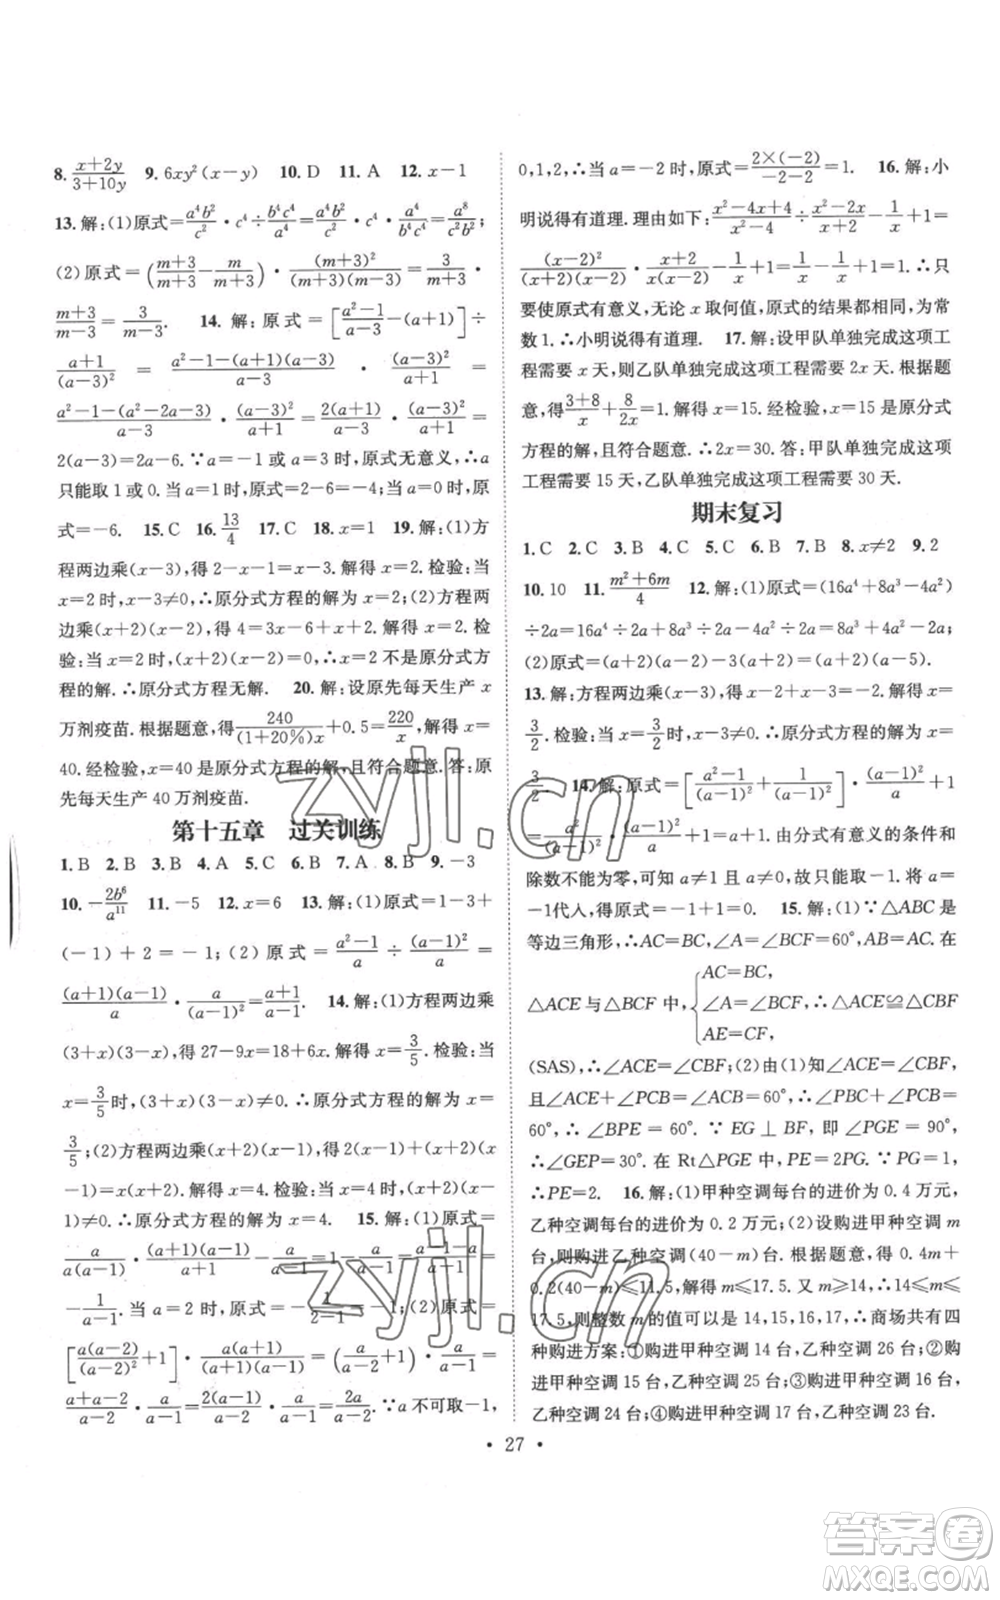 8. (x+2y)/(3+10y)　9. 6xy²(x−y)　10. D　11. A　12. x−1
13. 解:(1)原式=a⁴b²/c²·c⁴÷b⁴c⁴/a⁴=a⁴b²/c²·c⁴·a⁴/(b⁴c⁴)=a⁸/b²c²;
(2)原式=((m+3)/(m−3)−m/(m+3))·(m+3)²/((m+3)(m−3))=3/(m+3)·
(m+3)/(m−3)=3/(m−3).　14. 解:原式=[(a²−1)/(a−3)−(a+1)]÷
(a+1)/(a−3)²=(a²−1−(a+1)(a−3))/(a−3)·(a−3)²/(a+1)=
(a²−1−(a²−2a−3))/(a−3)·(a−3)²/(a+1)=2(a+1)/(a−3)·(a−3)²/(a+1)=
2(a−3)=2a−6.∵a=−1或a=3时,原式无意义,∴a
只能取1或0.当a=1时,原式=2−6=−4;当a=0时,原
式=−6.　15. C　16. 13/4　17. C　18. x=1　19. 解:(1)方
程两边乘(x−3),得2−x−1=x−3.解得x=2.检验:当
x=2时,x−3≠0,∴原分式方程的解为x=2;(2)方程两
边乘(x+2)(x−2),得4=3x−6+x+2.解得x=2.检
验:当x=2时,(x+2)(x−2)=0,∴x=2不是原分式方
程的解.∴原分式方程无解.　20. 解:设原先每天生产x
万剂疫苗.根据题意,得240/((1+20%)x)+0.5=220/x,解得x=
40.经检验,x=40是原分式方程的解,且符合题意.答:原
先每天生产40万剂疫苗.
第十五章　过关训练
1. B　2. B　3. B　4. A　5. C　6. B　7. A　8. B　9. −3
10. −2b⁶/a¹¹　11. −5　12. x=6　13. 解:(1)原式=1−3+
(−1)+2=−1;(2)原式=(a²−1)/a÷(a−1)²/a=
(a+1)(a−1)/a·a/(a−1)²=(a+1)/(a−1).　14. 解:(1)方程两边乘
(3+x)(3−x),得27−9x=18+6x.解得x=3/5.检验:当
x=3/5时,(3+x)(3−x)≠0.∴原分式方程的解为x=
3/5;(2)方程两边乘(x+2)(x−1),得2(x−1)+(x+2)(x−
1)=x(x+2).解得x=4.检验:当x=4时,(x+2)(x−
1)≠0.∴原分式方程的解为x=4.　15. 解:(1)原式=
a/(a(a−1))·(a+1)(a−1)/(a−1)
−1/(a−1).当a=2时,原式=−1/(2−1)=−1;(2)原式=
[a(a−2)/(a−2)²+1]·(a−1)=(a/(a−2)+1)·a/(a−1)=
·a/(a−1)=2a/(a−2).∵a不可取−1,
0,1,2,∴当a=−2时,原式=2×(−2)/(−2−2)=1.　16. 解:小
明说得有道理.理由如下:(x²−4x+4)/(x²−4)÷(x²−2x)/(x+2)−1/x+1=
(x−2)²/((x+2)(x−2))·(x+2)/(x(x−2))−1/x+1=1/x−1/x+1=1.∴只
要使原式有意义,无论x取何值,原式的结果都相同,为常
数1.∴小明说得有道理.　17. 解:设甲队单独完成这项工
程需要x天,则乙队单独完成这项工程需要2x天.根据题
意,得(3+8)/x+8/2x=1.解得x=15.经检验,x=15是原分式
方程的解,且符合题意.∴2x=30.答:甲队单独完成这项
工程需要15天,乙队单独完成这项工程需要30天.
期末复习
1. C　2. C　3. B　4. C　5. C　6. B　7. B　8. x≠2　9. 2
10. 10　11. (m²+6m)/4　12. 解:(1)原式=(16a⁴+8a³−4a²)
÷2a=16a⁴÷2a+8a³÷2a−4a²÷2a=8a³+4a²−2a;
(2)原式=(a+2)(a−2)−3(a+2)=(a+2)(a−5).
13. 解:方程两边乘(x−3),得x−2+x−3=−2.解得x=
3/2.检验:当x=3/2时,x−3≠0.∴原分式方程的解为x=
3/2.　14. 解:原式=[(a²−1)/(a−1)²+1/(a−1)]·(a−1)/a+1
=a²/(a−1)²·(a−1)/a=a/(a−1).由分式有意义的条件和
除数不能为零,可知a≠1且a≠0,∴a=−1.将a=
−1代人,得原式=1/2.　15. 解:(1)∵△ABC是
等边三角形,∴AC=BC,∠A=∠BCF=60°,AB=AC.在
△ACE与△BCF中,{AC=BC, ∠A=∠BCF, AE=CF, ∴△ACE≌△CBF
(SAS),∴∠ACE=∠CBF;(2)由(1)知∠ACE=∠CBF,
且∠ACE+∠PCB=∠ACB=60°,∴∠PBC+∠PCB=
60°,∴∠BPE=60°.∵EG⊥BF,即∠PGE=90°,
∴∠GEP=30°.在Rt△PGE中,PE=2PG.∵PG=1,
∴PE=2.　16. 解:(1)甲种空调每台的进价为0.4万元,
乙种空调每台的进价为0.2万元;(2)设购进甲种空调m
台,则购进乙种空调(40−m)台.根据题意,得0.4m+
0.2(40−m)≤11.5,解得m≤17.5.又m≥14,∴14≤m≤
17.5,则整数m的值可以是14,15,16,17,∴商场共有四
种购进方案:①购进甲种空调14台,乙种空调26台;②购
进甲种空调15台,乙种空调25台;③购进甲种空调16台,
乙种空调24台;④购进甲种空调17台,乙种空调23台.
• 27 •
zyjl.cn
zyjl.cn
答案卷
MXQE.COM